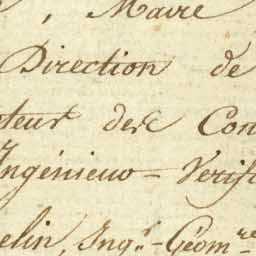 , Maire
Direction de
teur des Con
Ingénieur = Vérifi
elin, Ing.r = Géom.re